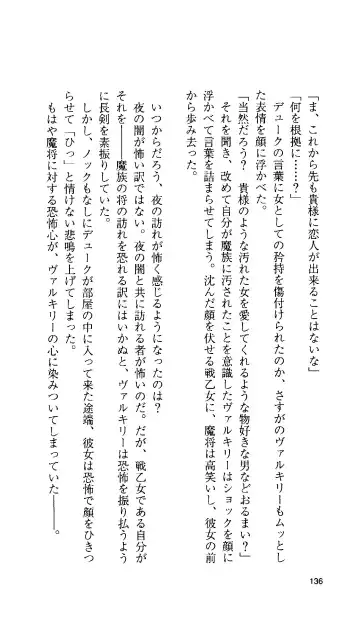 「ま、これから先も貴様に恋人が出来ることはないな」
「何を根拠に……？」
デュークの言葉に女としての矜持を傷付けられたのか、さすがのヴァルキリーもムッとし
た表情を顔に浮かべた。
「当然だろう？　貴様のような汚れた女を愛してくれるような物好きな男などおるまい？」
それを聞き、改めて自分が魔族に汚されたことを意識したヴァルキリーはショックを顔に
浮かべて言葉を詰まらせてしまう。沈んだ顔を伏せる戦乙女に、魔将は高笑いし、彼女の前
から歩み去った。
いつからだろう、夜の訪れが怖く感じるようになったのは？
夜の闇が怖い訳ではない。夜の闇と共に訪れる者が怖いのだ。だが、戦乙女である自分が
それを――魔族の将の訪れを恐れる訳にはいかぬと、ヴァルキリーは恐怖を振り払うよう
に長剣を素振りしていた。
しかし、ノックもなしにデュークが部屋の中に入って来た途端、彼女は恐怖で顔をひきつ
らせて「ひっ」と情けない悲鳴を上げてしまった。
もはや魔将に対する恐怖心が、ヴァルキリーの心に染みついてしまっていた――。
136